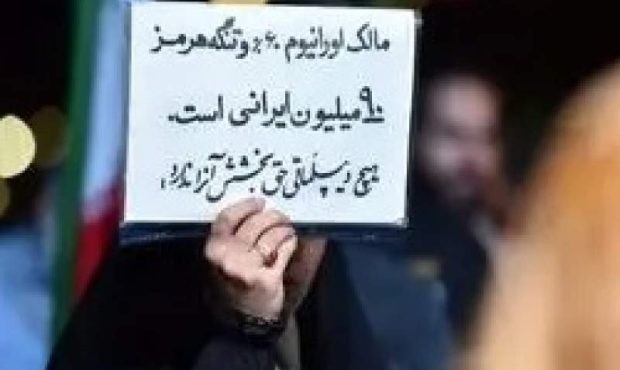 مالک اورانیوم ۶۰٪ و تنگه هرمز
۹۰ میلیون ایرانی است.
هیچ دیپلماتی حق بخشش آنرا ندارد.